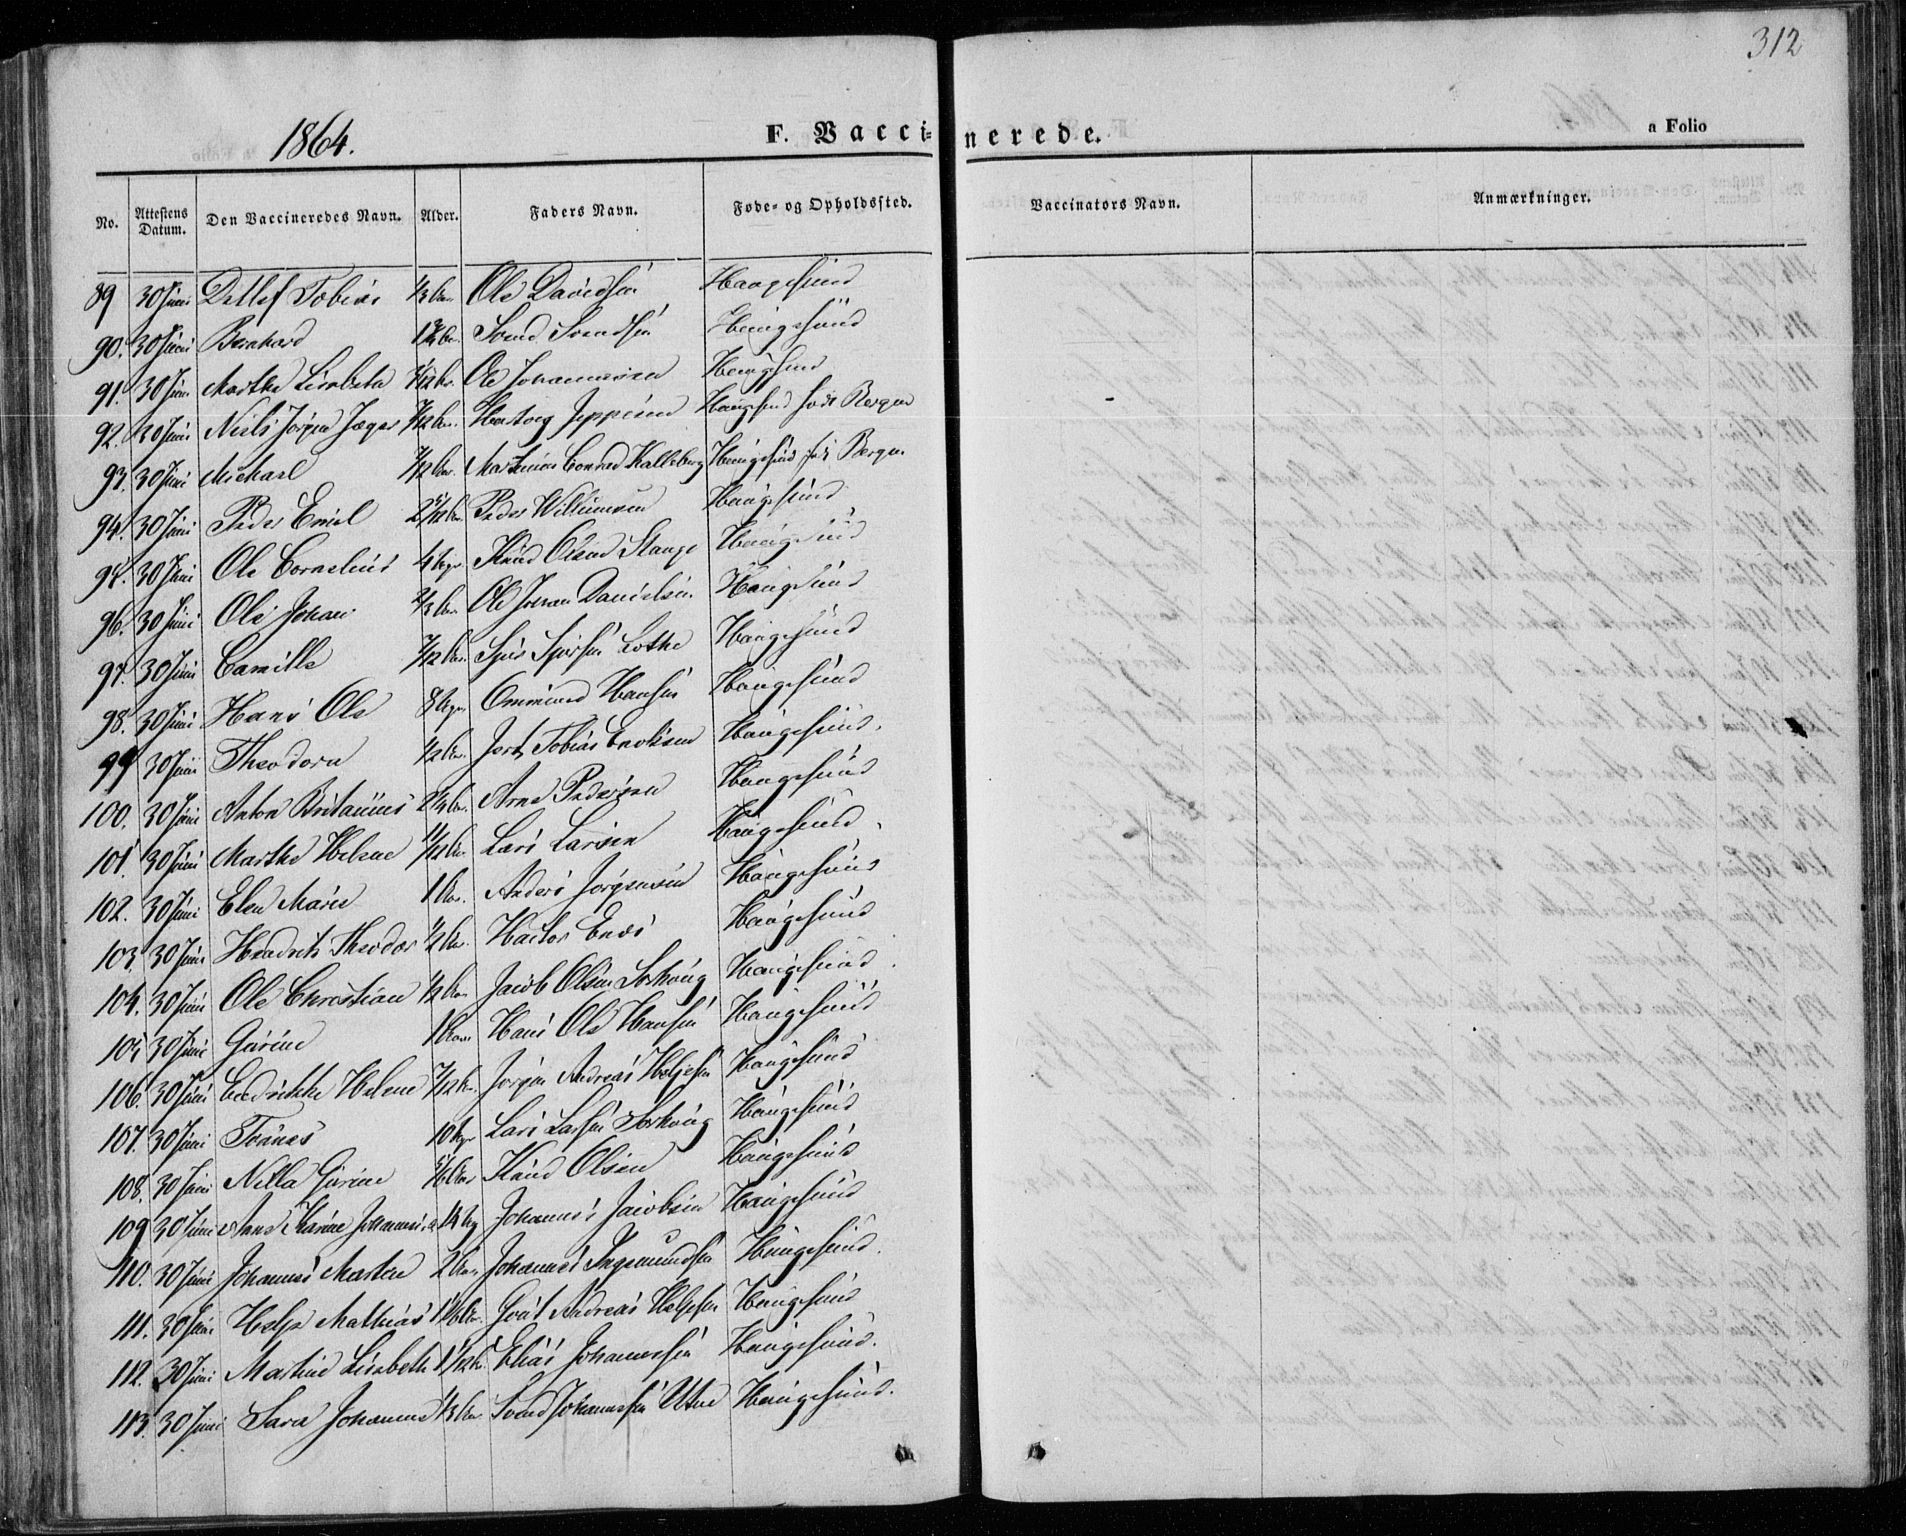 312
1864.
F. Vaccinerede.
a Folio
No. Attestens Datum. Den Vaccineredes Navn. Alder. Faders Navn. Føde- og Opholdssted. Vaccinators Navn. Anmærkninger.
89 30 Juni Detlef Tobias 1/3 Aar Ole Davidsen Haugesund
90. 30 Juni Bernhard Svend Svendsen Haugesund
91. 30 Juni Marthe Lisabeta Ole Johannesen Haugesund
92. 30 Juni Niels Jørgen Jæger 7/12 Aar. Hartvig Jeppesen Haugesund født Bergen
93. 30 Juni Michael 7/12 Aar Martinus Conrad Kalleberg Haugesund født Bergen
94. 30 Juni Peder Emil Peder Williumsen Haugesund
95. 30 Juni Ole Cornelius 4 Uger Knud Olsen Stange Haugesund
96. 30 Juni Ole Johan 2/3 Aar Ole Johan Danielsen Haugesund
97. 30 Juni Camilla 7/12 Aar Sjur Sjursen Lothe Haugesund
98. 30 Juni Hans Ole 8 Uger Ommund Hansen Haugesund
99 30 Juni Theodora 1/2 Aar. Tobias Enoksen Haugesund.
100. 30 Juni Anton Britanius Arne Pedersen Haugesund
101. 30 Juni Marthe Helene 11/12 Aar Lars Larsen Haugesund.
102. 30 Juni Elen Marie 1 Aar. Anders Jørgensen Haugesund
103. 30 Juni Hendrik Theodor 1/2 Aar. Hactor Enes Haugesund
104. 30 Juni Ole Christian 1/2 Aar Jacob Olsen Sørhaug Haugesund.
105 30 Juni Gurine 1 Aar Hans Ole Hansen Haugesund
106. 30 Juni Endrikke Helene 7/12 Aar. Jørgen Andreas Helgesen Haugesund
107. 30 Juni Tønnes 10 Uger Lars Larsen Sørhaug Haugesund
108. 30 Juni Nilla Gurine 5/6 Aar Knud Olsen Haugesund
109 30 Juni Ane Karine Johannes 14 Ug Johannes Jacobsen Haugesund
110. 30 Juni Johannes Marten 2 Aar Johannes Ingemundsen Haugesund.
111. 30 Juni Helge Mathias Andreas Helgesen Haugesund
112. 30 Juni Martine Lisabeth Elias Johannesen Haugesund.
113. 30 Juni Sara Johanne 1/3 Aar Svend Johannesen Utne Haugesund.